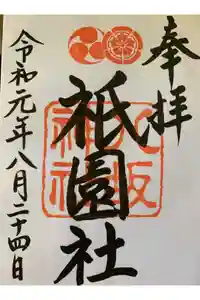 奉拝
祇園社
大坂
神社
令和元年八月二十四日